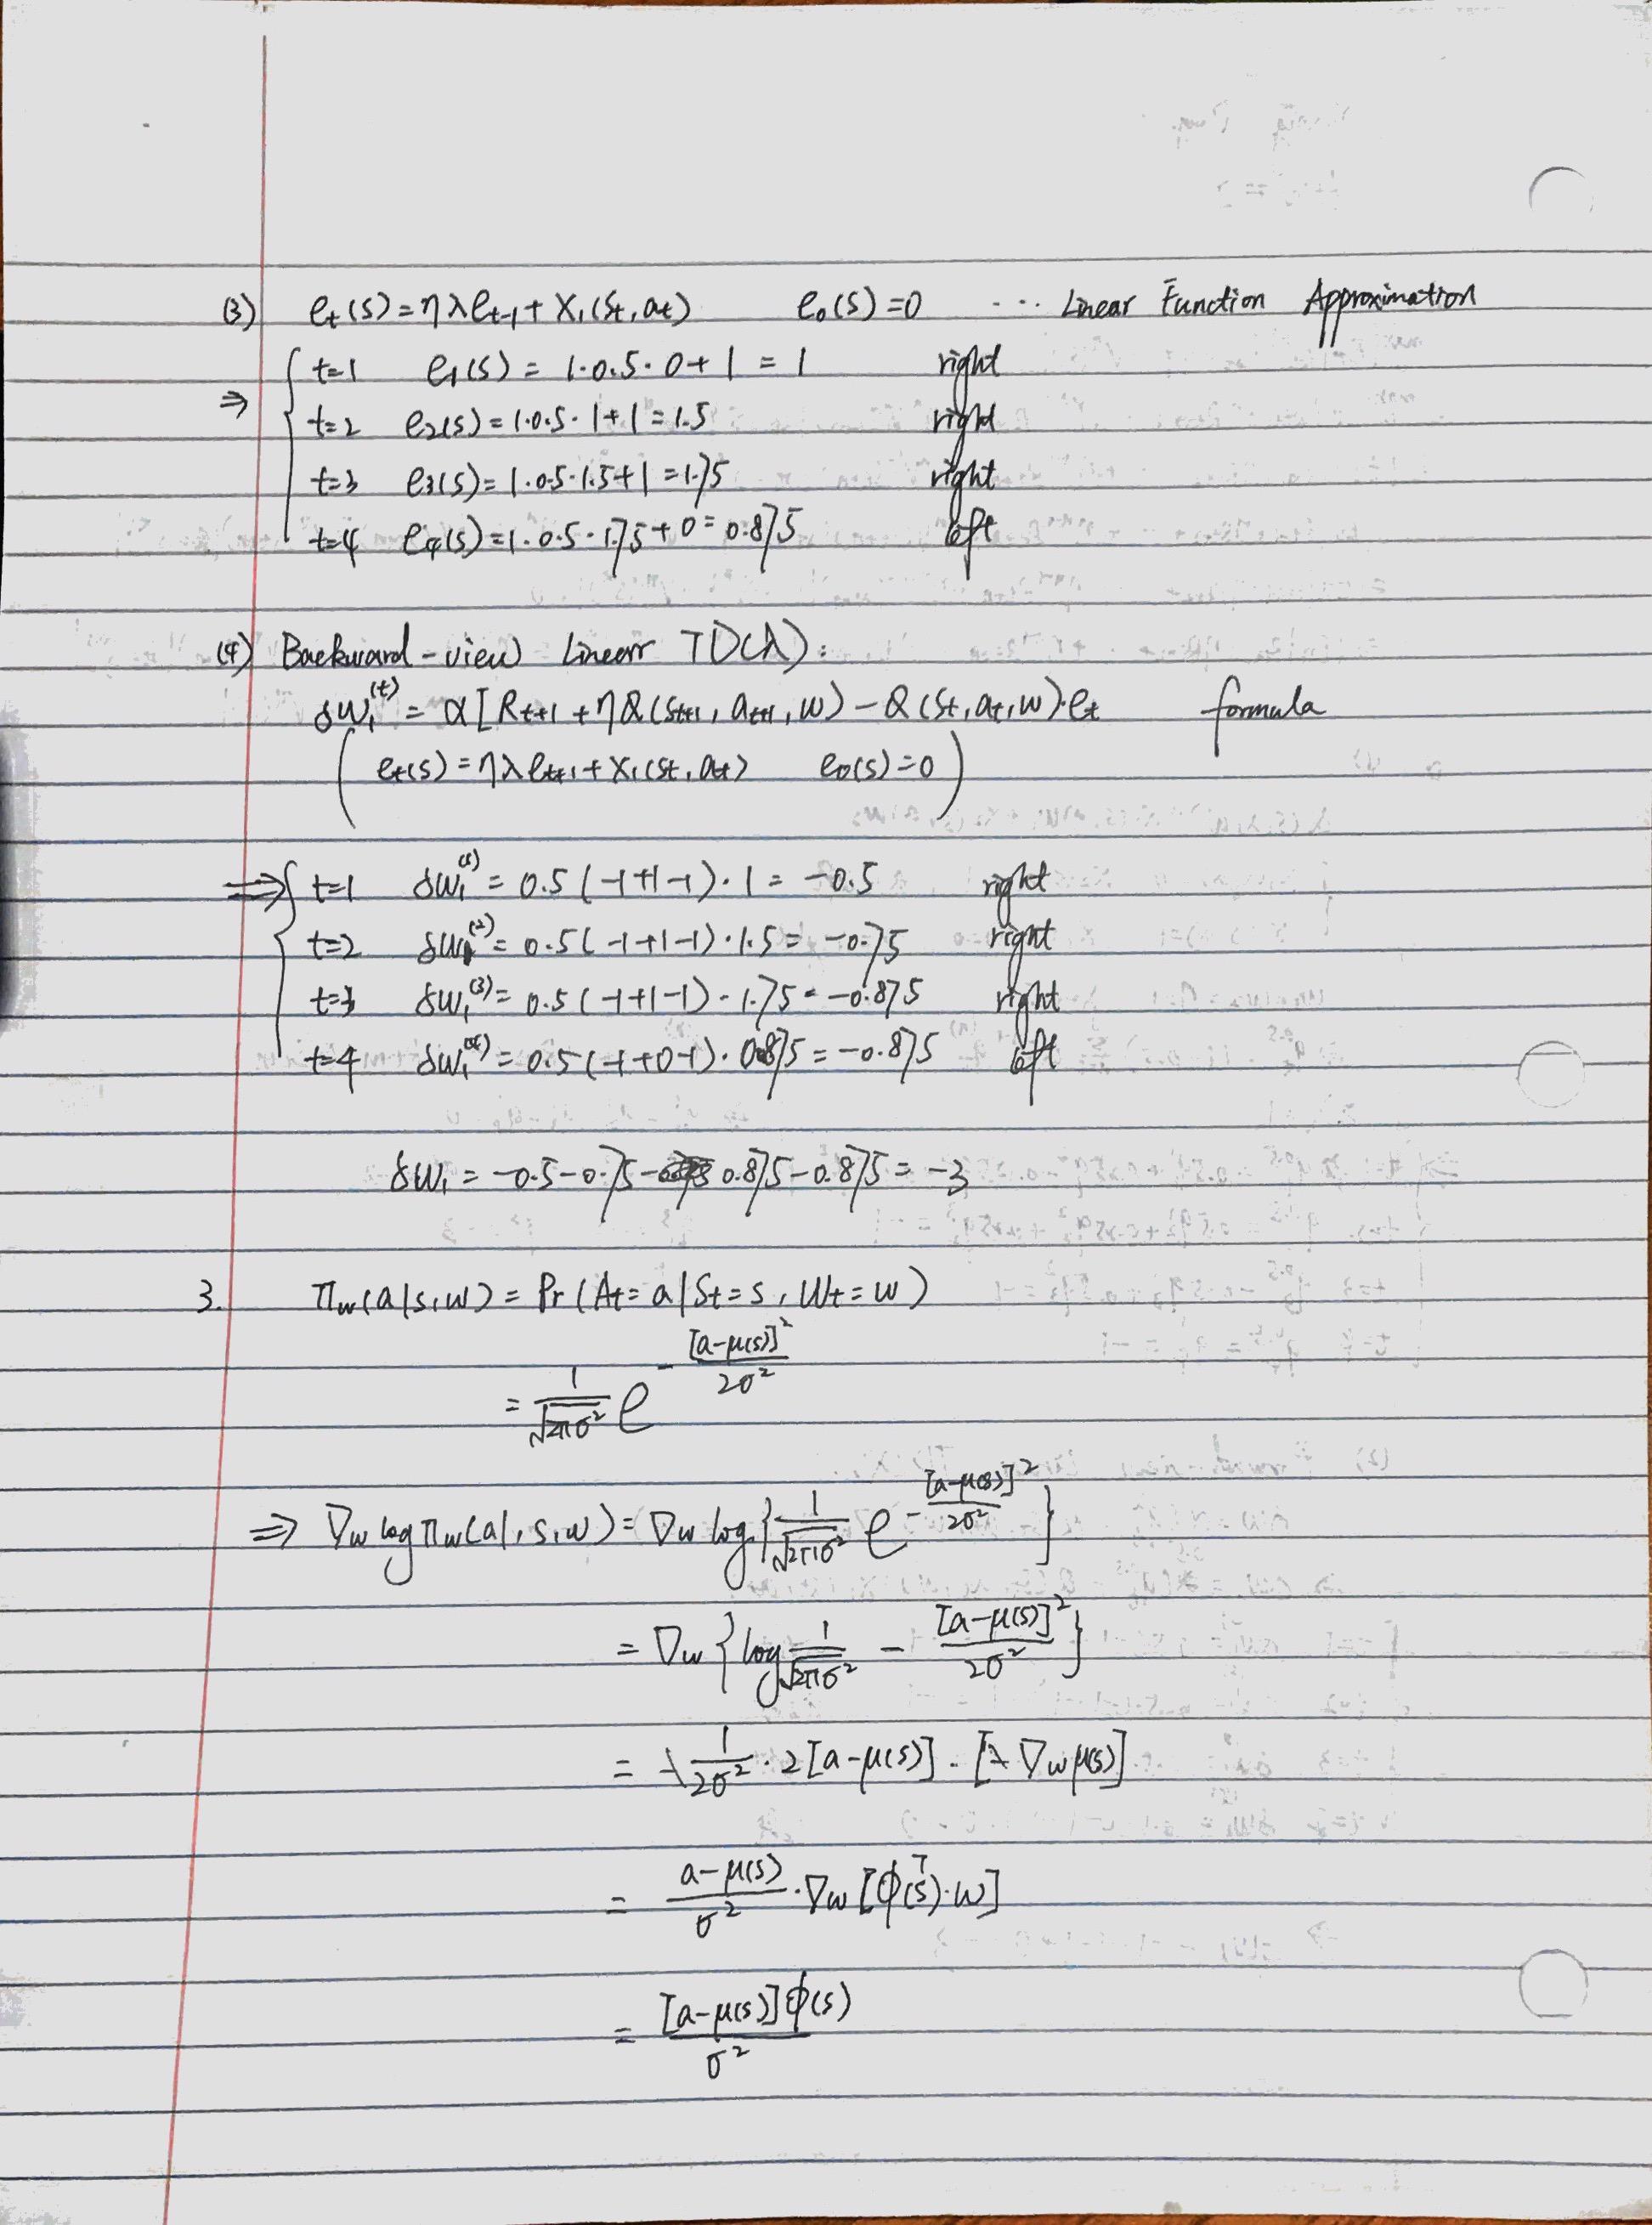 (3) e_t(s) = ηλe_{t-1} + X_1(S_t, a_t)   e_0(s) = 0   ... Linear Function Approximation
⇒ { t=1   e_1(s) = 1·0.5·0+1 = 1   right
t=2   e_2(s) = 1·0.5·1+1 = 1.5   right
t=3   e_3(s) = 1·0.5·1.5+1 = 1.75   right
t=4   e_4(s) = 1·0.5·1.75+0 = 0.875   left
(4) Backward-view Linear TD(λ):
δw_1^{(t)} = α[R_{t+1} + ηQ(S_{t+1}, a_{t+1}, w) - Q(S_t, a_t, w)·e_t   formula
(e_t(s) = ηλe_{t+1} + X_1(S_t, a_t)   e_0(s) = 0)
⇒ { t=1   δw_1^{(1)} = 0.5(-1+1-1)·1 = -0.5   right
t=2   δw_1^{(2)} = 0.5(-1+1-1)·1.5 = -0.75   right
t=3   δw_1^{(3)} = 0.5(-1+1-1)·1.75 = -0.875   right
t=4   δw_1^{(4)} = 0.5(-1+0-1)·0.875 = -0.875   left
δw_1 = -0.5-0.75-0.875-0.875 = -3
3. π_w(a|s,w) = Pr(A_t=a|S_t=s, W_t=w)
= \frac{1}{\sqrt{2πσ^2}} e^{-\frac{[a-μ(s)]^2}{2σ^2}}
⇒ ∇_w log π_w(a|,s,w) = ∇_w log{\frac{1}{\sqrt{2πσ^2}} e^{-\frac{[a-μ(s)]^2}{2σ^2}}}
= ∇_w {log \frac{1}{\sqrt{2πσ^2}} - \frac{[a-μ(s)]^2}{2σ^2}}
= \frac{1}{2σ^2}·2[a-μ(s)]·[∇_w μ(s)]
= \frac{a-μ(s)}{σ^2}·∇_w[φ(s)^T·w]
= \frac{[a-μ(s)]φ(s)}{σ^2}